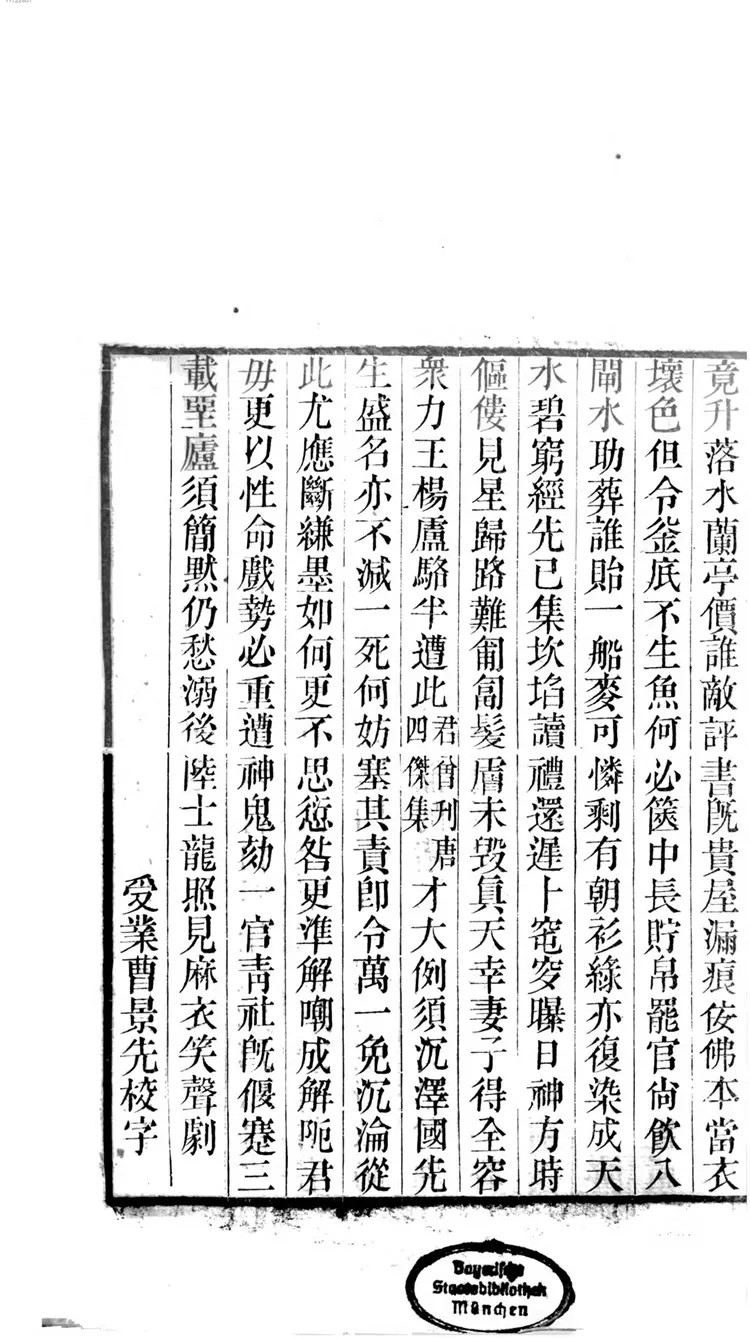 竟升落水蘭亭價誰敵評書旣貴屋漏痕佞佛本當衣
壞色但令釜底不生魚何必篋中長貯帛罷官尙飮八
閘水助葬誰貽一船麥可憐剩有朝衫綠亦復染成天
水碧窮經先已集坎埳讀禮還遲卜窀穸曝日神方時
傴僂見星歸路難匍匐髮膚未毀眞天幸妻子得全容
衆力王楊盧駱半遭此君曾刊唐四傑集才大例須沉澤國先
生盛名亦不減一死何妨塞其責卽令萬一免沉淪從
此尤應斷縑墨如何更不思愆咎更準解嘲成解阨君
毋更以性命戲勢必重遭神鬼劾一官靑社旣偃蹇三
載堊廬須簡默仍愁溺後陸士龍照見麻衣笑聲劇
受業曹景先校字
Bayerische
Staatsbibliothek
München